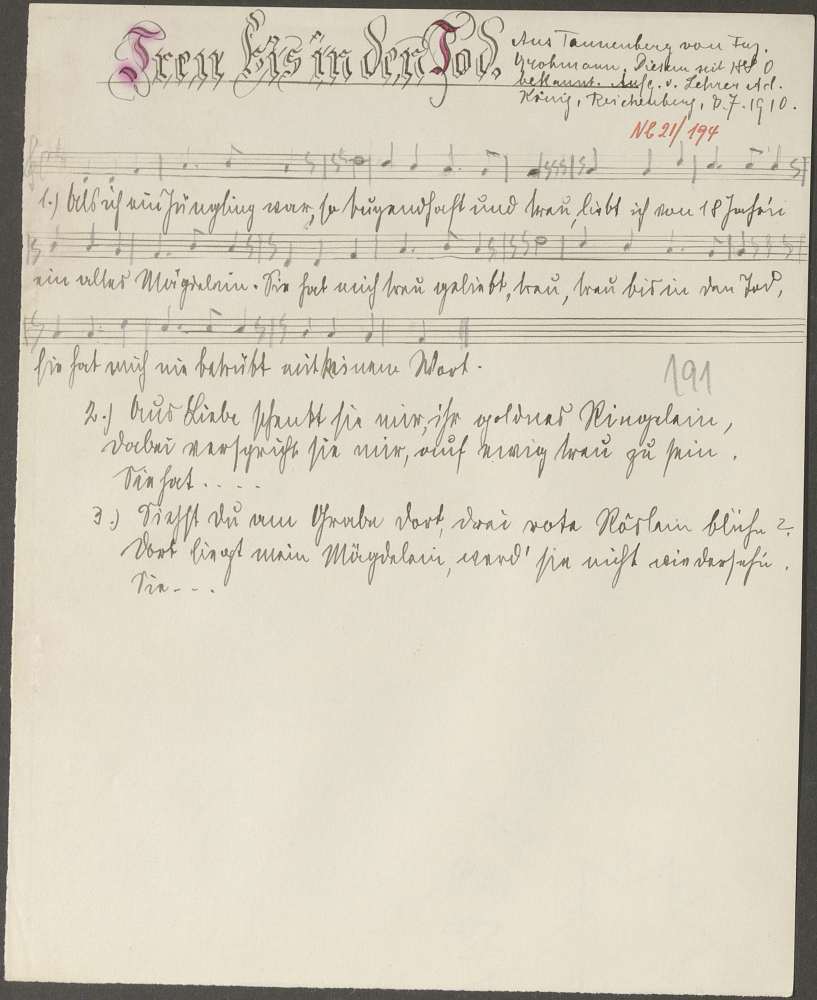 Treu bis in den Tod.
Aus Tannenberg von Fuz.
Grohmann. Diesem seit 1880
bekannt. Aufg. v. Lehrer Ad.
König, Reichenberg, 8.7.1910.
NL 21/194
1.) Als ich ein Jüngling war, so tugendhaft und treu, liebt ich von 18 Jahren
ein altes Mägdelein. Sie hat mich treu geliebt, treu, treu bis in den Tod,
sie hat mich nie betrübt mit keinem Wort.
191
2.) Aus Liebe schenkt sie mir, ihr goldnes Ringelein,
dabei verspricht sie mir, auf ewig treu zu sein.
Sie hat . . . .
3.) Siehst du am Grabe dort, drei rote Röslein blühn?
Dort liegt mein Mägdelein, werd' sie nicht wiedersehn.
Sie - - .